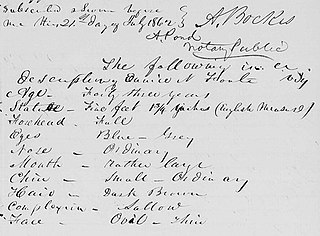 Subscribed & Sworn before
me this 21st day of July 1862 A. Bockes
A. Pond
Notary Public
The following is a
Description Daniel viz
Age - Forty three years
Stature - Five feet inches (English Measure)
Forehead - Full
Eyes - Blue - Grey
Nose - Ordinary
Mouth - Rather large
Chin - Small - Ordinary
Hair - Dark Brown
Complexion - Sallow
Face - Oval - Thin